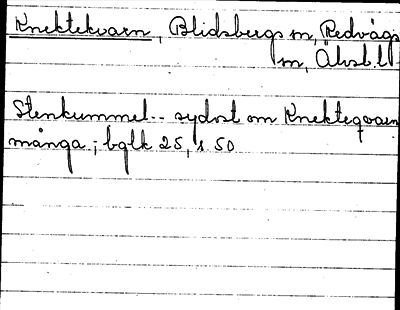 Knektekvarn, Blidsbergs sn, Redvägs
sn, Älvsb.l.
Stenkummel.. sydost om Knekteqvarn
många; bglk 25, s. 50